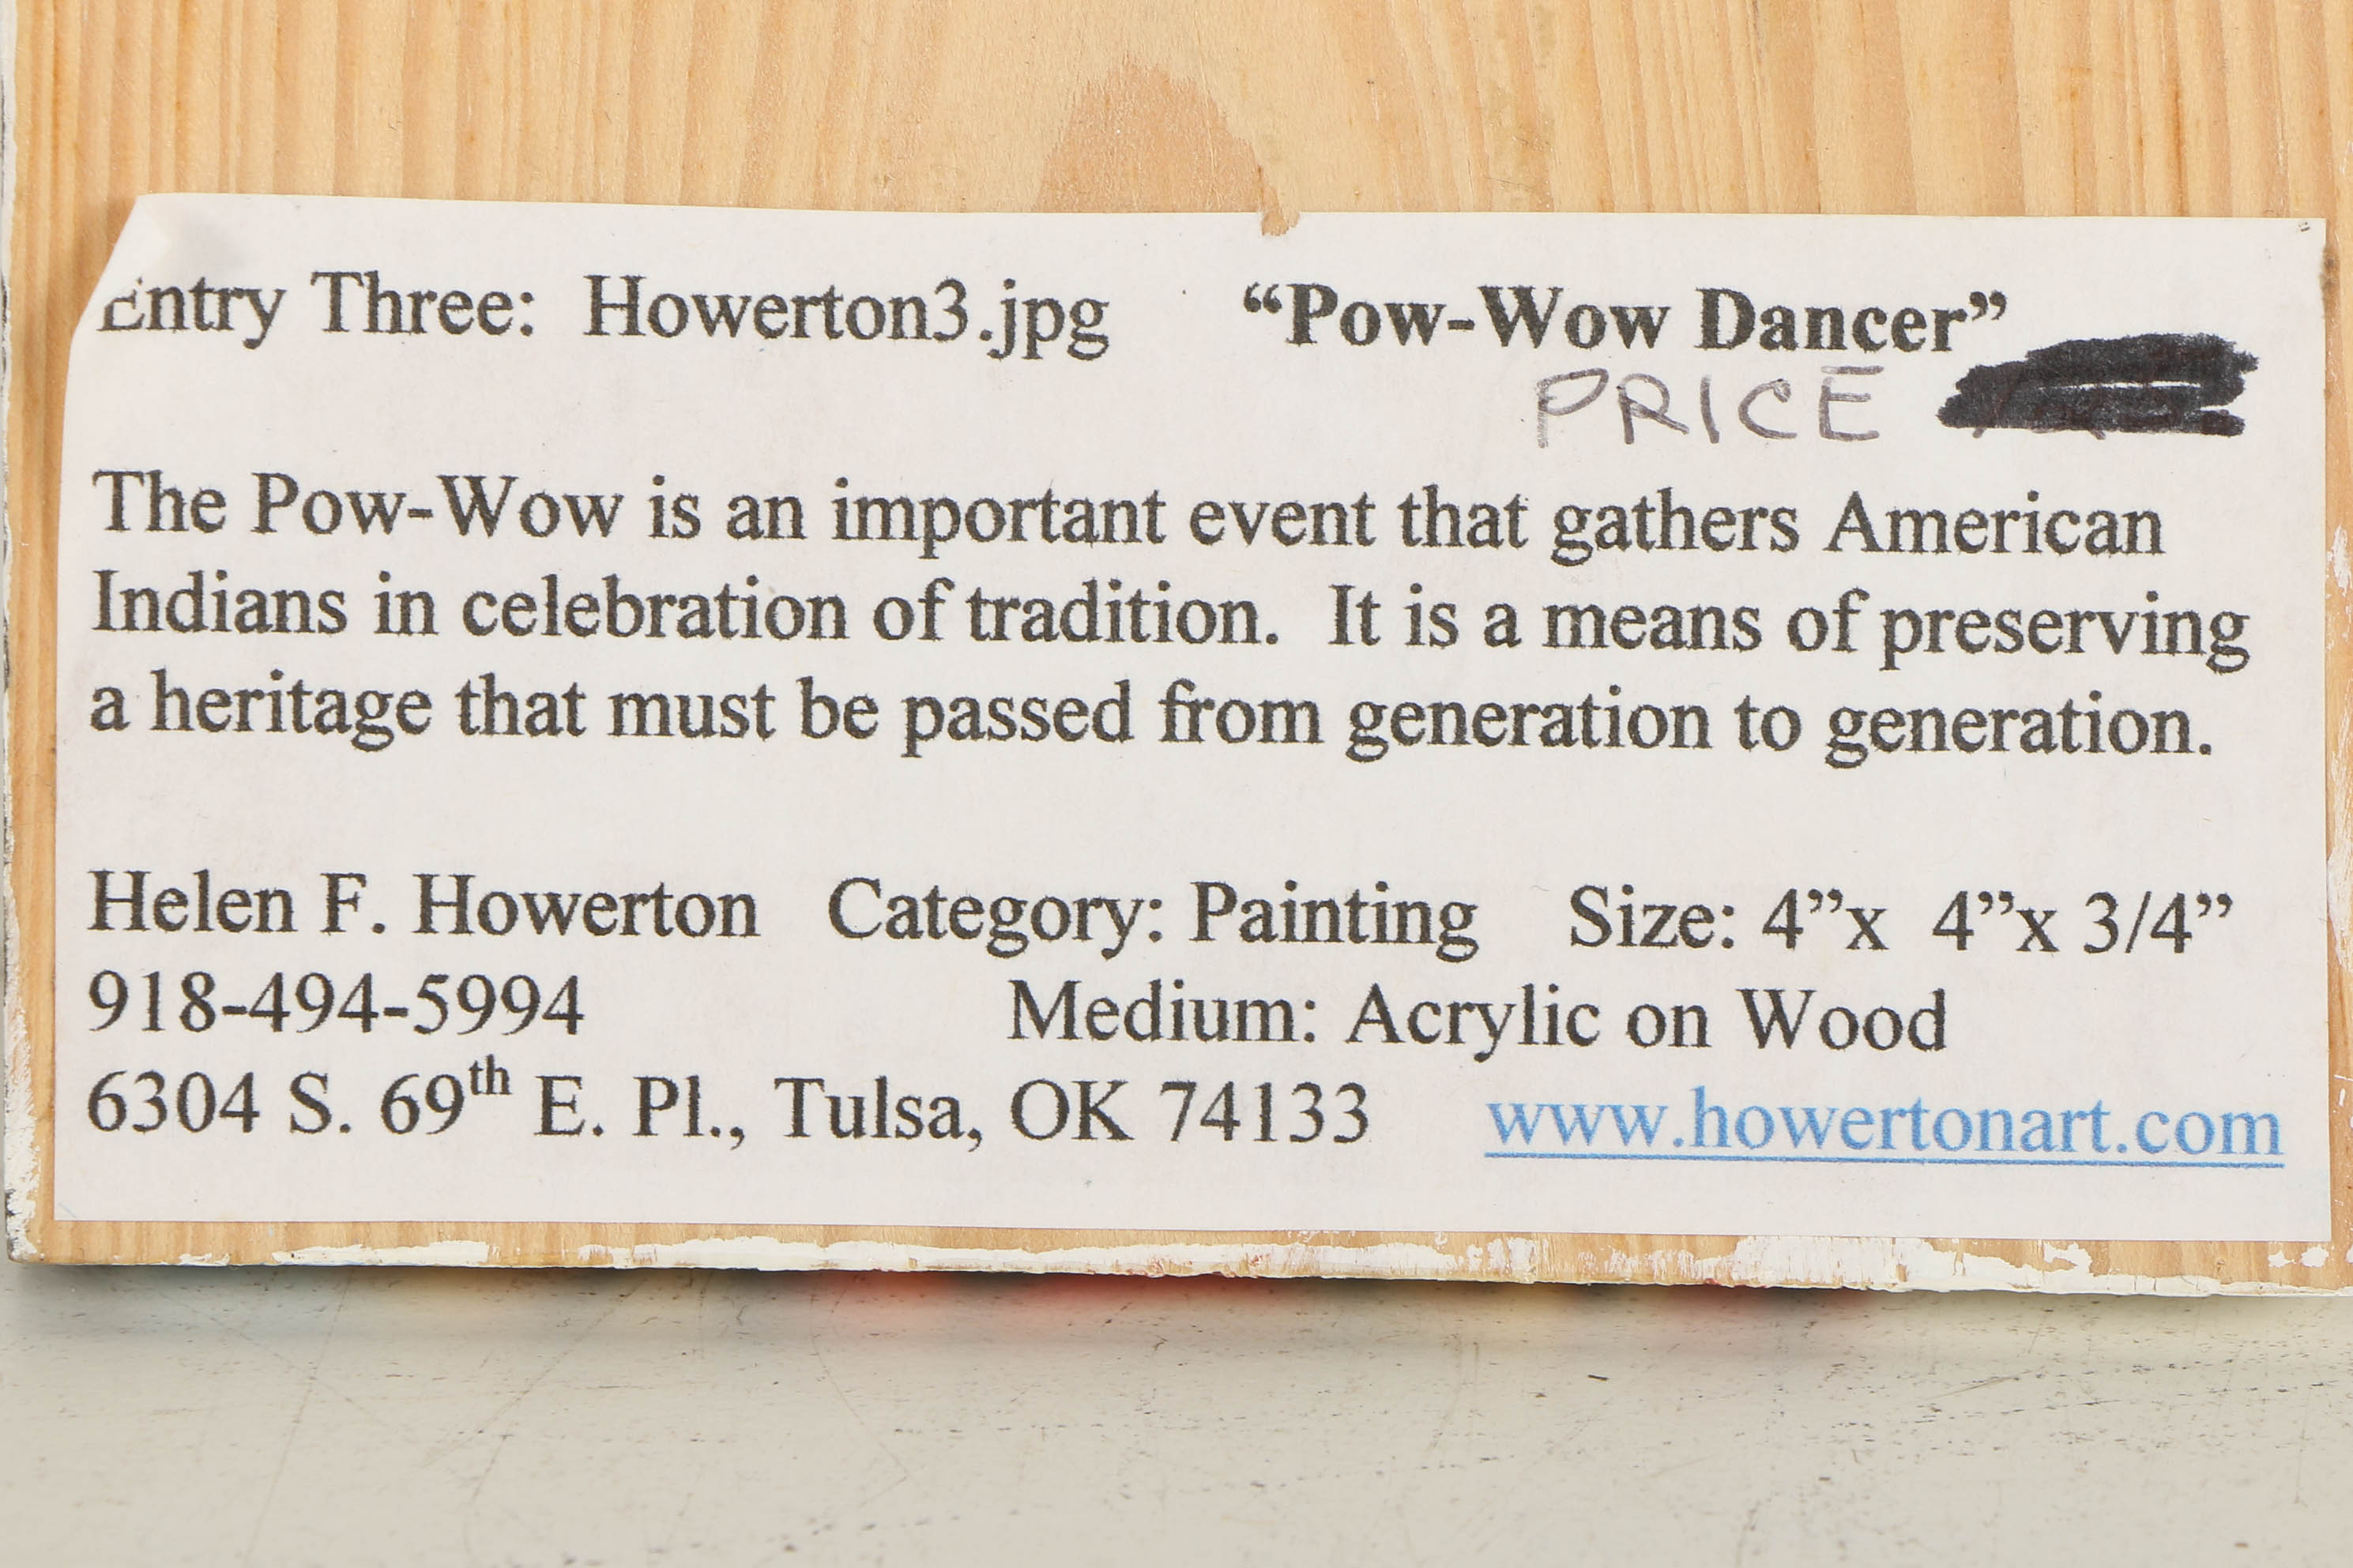 Entry Three:  Howerton3.jpg    “Pow-Wow Dancer”
PRICE
The Pow-Wow is an important event that gathers American
Indians in celebration of tradition.  It is a means of preserving
a heritage that must be passed from generation to generation.
Helen F. Howerton   Category: Painting    Size: 4”x  4”x 3/4”
918-494-5994    Medium: Acrylic on Wood
6304 S. 69th E. Pl., Tulsa, OK 74133    www.howertonart.com